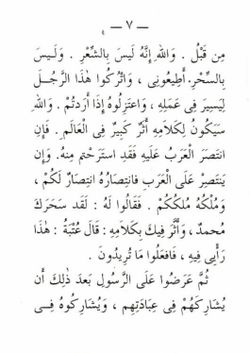 — ٧ —
مِن قَبْلُ . وَاللهِ إِنَّهُ لَيسَ بِالشِّعْرِ . وَلَيسَ
بِالسِّحْرِ، أَطِيعُونِى ، وَاتْرُكُوا هٰذَا الرَّجُلَ
لِيَسِيرَ فِى عَمَلِهِ ، وَاعْتَزِلُوهُ إِذَا أَردتُمْ . وَاللهِ
سَيَكُونُ لِكَلامِهِ أَثَرٌ كَبِيرٌ فِى العَالَمِ . فَإِنِ
انتَصَرَ العَرَبُ عَلَيهِ فَقَدِ استَرَحْتُم مِنهُ. وَإِن
يَنتَصِرْ عَلَى العَرَبِ فَانتِصَارُهُ انتِصَارٌ لَكُمْ ،
وَمُلْكُهُ مُلْكُكُمْ . فَقَالُوا لَهُ : لَقَد سَحَرَكَ
مُحمدٌ ، وَأَثَّرَ فِيكَ بِكَلامِهِ : قَالَ عُتْبَةُ : هٰذَا
رَأْيِى فِيهِ ، فَافعَلُوا مَا تُرِيدُونَ .
ثُمَّ عَرَضُوا عَلَى الرَّسُولِ بَعدَ ذٰلِكَ أَن
يُشَارِكَهُمْ فِى عِبَادَتِهِم ، وَيُشَارِكُوهُ فِى